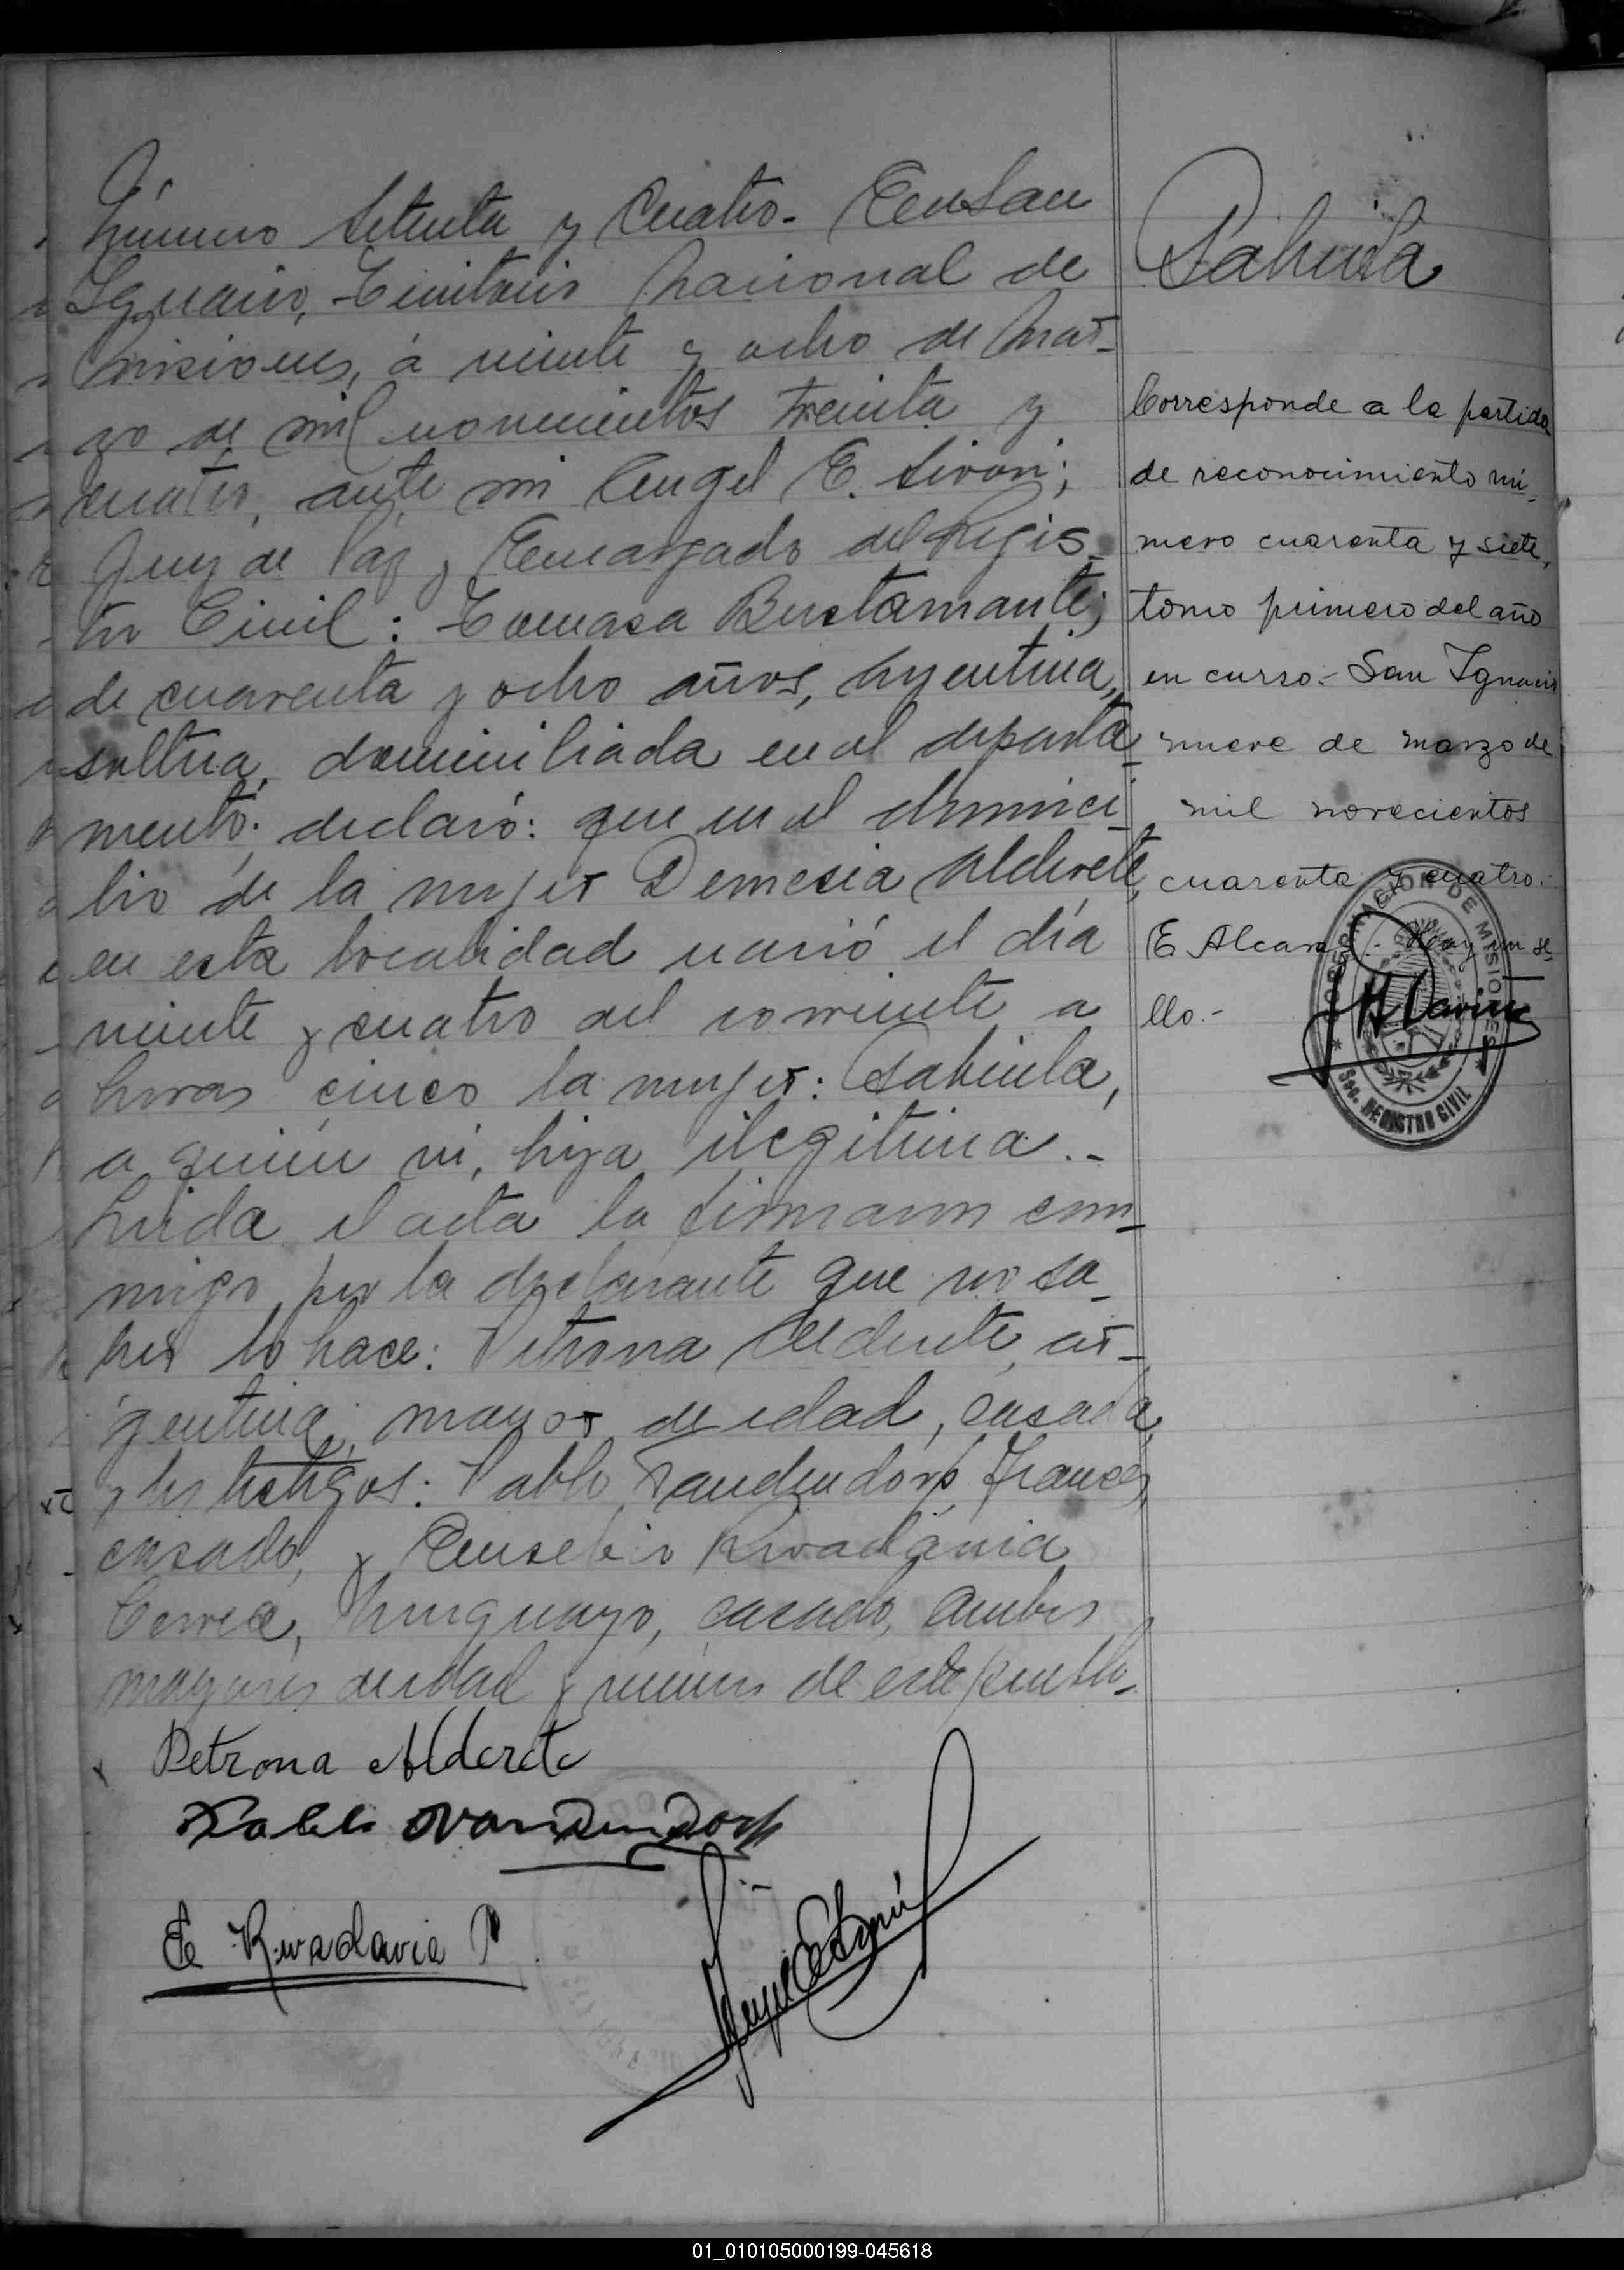 Número Setenta y Cuatro. En San
Ignacio, Territorio Nacional de
Misiones, á veinte y ocho de Mar-
zo de mil novecientos treinta y
cuatro, ante mi Angel E.
Juez de Paz y Encargado del Regis-
tro Civil: Tomasa Bustamante;
de cuarenta y ocho años, Argentina,
soltera, domiciliada en el departa-
mento; declaró: que en el domici-
lio de la mujer Demesia Alderete,
en esta localidad nació el día
veinte y cuatro del corriente a
horas cinco la mujer:
a quién vi, hija ilegitima.-
Leida el acta la firmaron con-
migo, por la declarante que no sa-
ber lo hace: Petrona Alderete, ar-
gentina, mayor de edad, casada,
y los testigos: Pablo Vandendorp, Francés,
casado, y Eusebio Rivadavia
Correa, Uruguayo, casado, ambos
mayores de edad y vecinos de este pueblo-
Petrona Alderete
Pablo Vandendorp
E Rivadavia
Corresponde a la partida
de reconocimiento nú-
mero cuarenta y siete,
tomo primero del año
en curso.- San Ignacio
nueve de marzo de
mil novecientos
cuarenta y cuatro.-
E Alcaraz.- Hay un se-
llo.-
GOBERNACION DE MISIONES
Sec. REGISTRO CIVIL
01_010105000199-045618